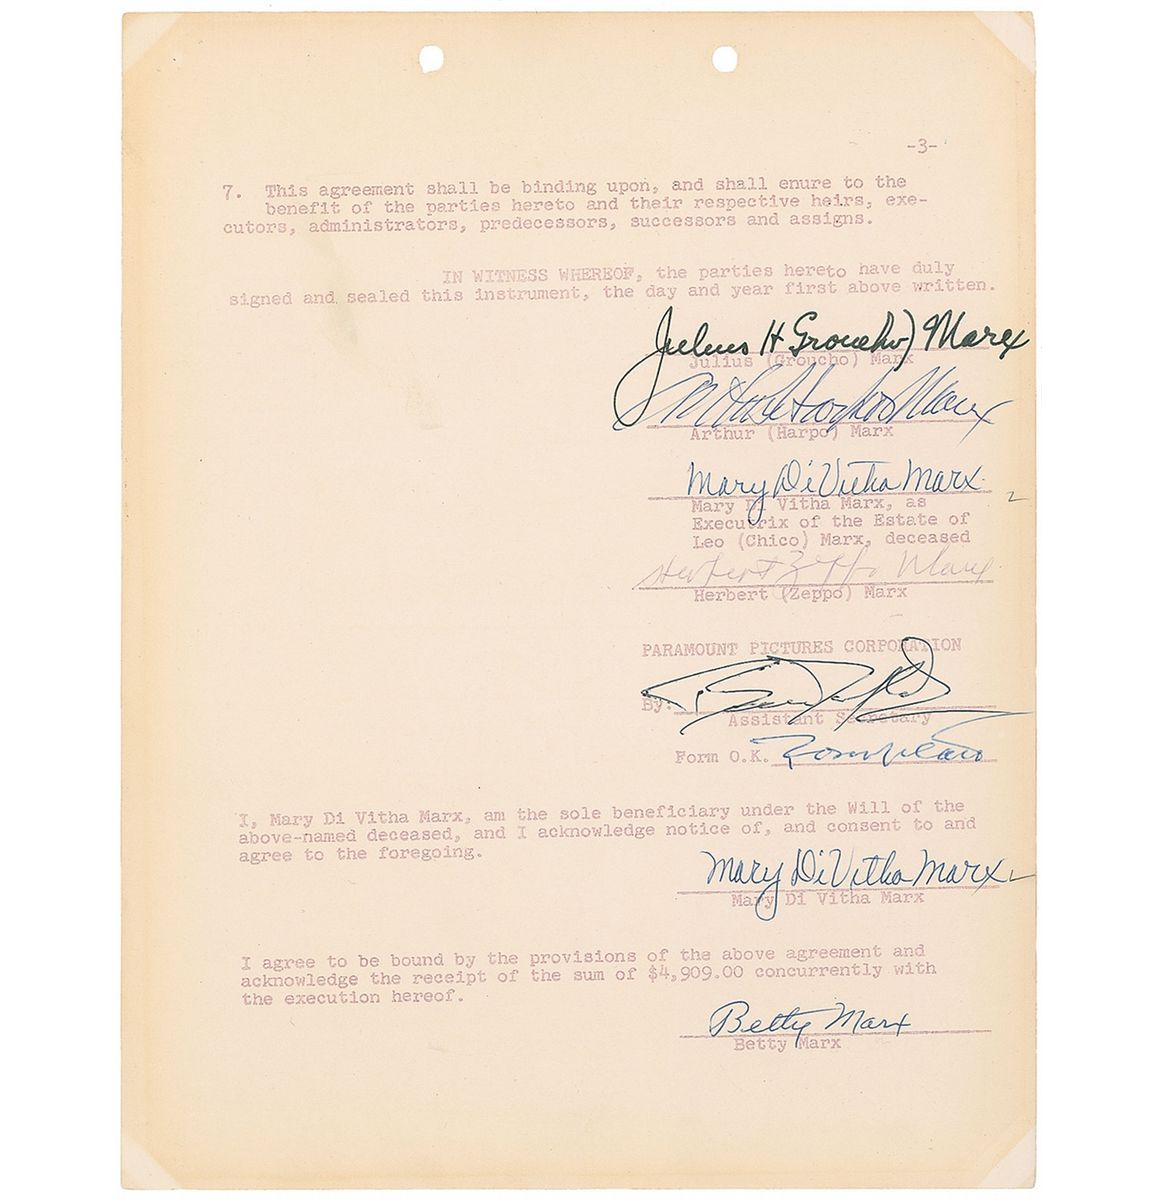 -3-
7. This agreement shall be binding upon, and shall enure to the
benefit of the parties hereto and their respective heirs, exe-
cutors, administrators, predecessors, successors and assigns.
IN WITNESS WHEREOF, the parties hereto have duly
signed and sealed this instrument, the day and year first above written.
Julius H Groucho) Marx
Julius (Groucho) Marx
Harpo Marx
Arthur (Harpo) Marx
Mary Di Vitha Marx
Mary Di Vitha Marx, as
Executrix of the Estate of
Leo (Chico) Marx, deceased
Herbert Zeppo Marx
Herbert (Zeppo) Marx
PARAMOUNT PICTURES CORPORATION
By:
Assistant Secretary
Form O.K.
I, Mary Di Vitha Marx, am the sole beneficiary under the Will of the
above-named deceased, and I acknowledge notice of, and consent to and
agree to the foregoing.
Mary Di Vitha Marx
Mary Di Vitha Marx
I agree to be bound by the provisions of the above agreement and
acknowledge the receipt of the sum of $4,909.00 concurrently with
the execution hereof.
Betty Marx
Betty Marx